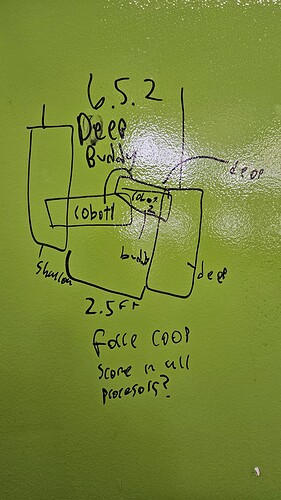 6.5.2
Deep
Buddy
deep
cobot1
cobot
2
buddy
shallow
deep
2.5 FT
Force COOP
Score in all
procesors?